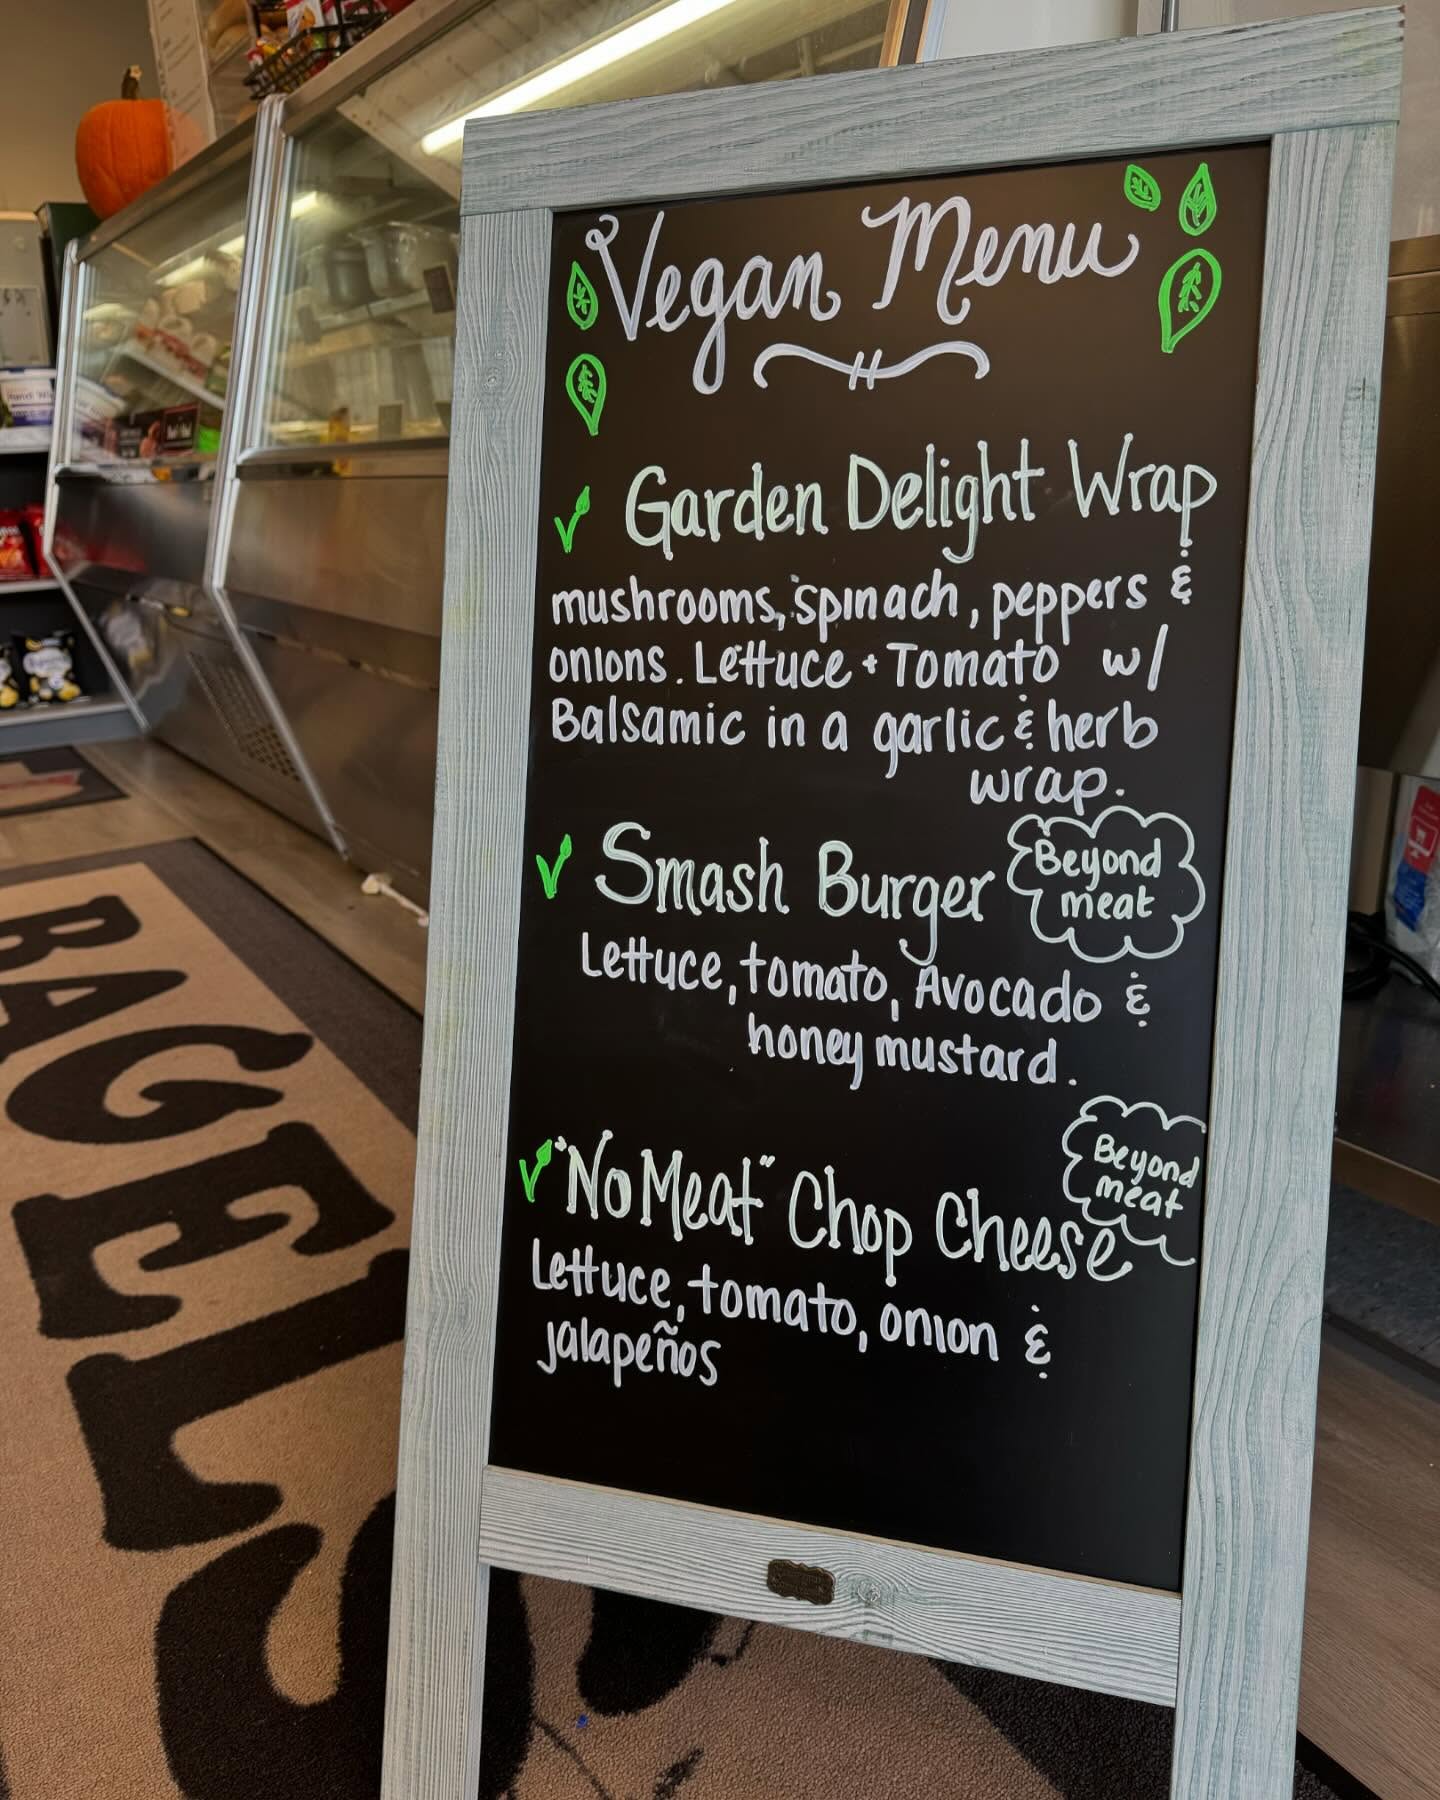 Vegan Menu
Garden Delight Wrap
mushrooms, spinach, peppers &
onions. Lettuce + Tomato w/
Balsamic in a garlic & herb
wrap.
Smash Burger
Beyond
meat
Lettuce, tomato, Avocado &
honey mustard.
"No Meat" Chop Cheese
Beyond
meat
Lettuce, tomato, onion &
jalapeños
BAGELS